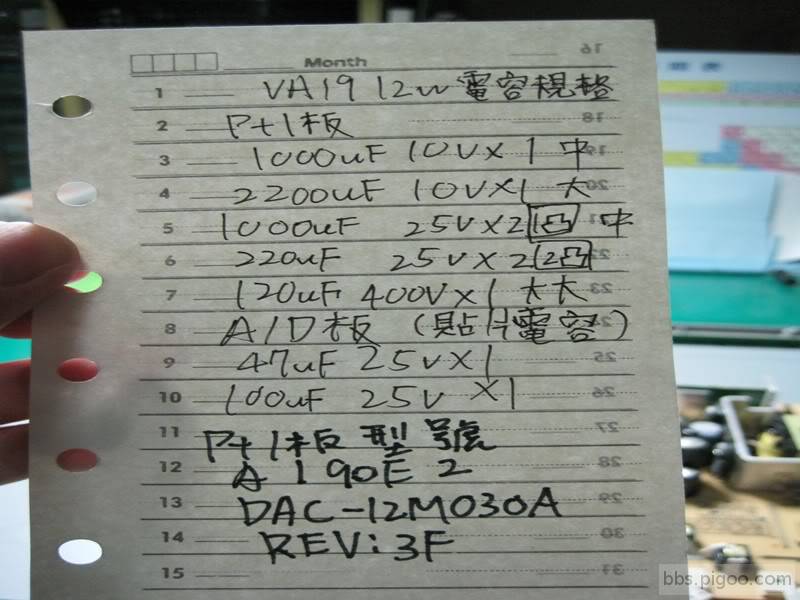 Month
16
1 VA19 12w 電容規格
2 P+I板
18
3 1000uF 10V×1 中
19
4 2200uF 10V×1 大
20
5 1000uF 25V×2 1凸 中
21
6 220uF 25V×2 2凸
22
7 120uF 400V×1 大大
23
8 A/D板 (貼片電容)
9 47uF 25V×1
25
10 100uF 25V ×1
26
11 P+I板型號
27
12 A190E2
28
13 DAC-12M030A
29
14 REV:3F
30
15
31
bbs.pigoo.com